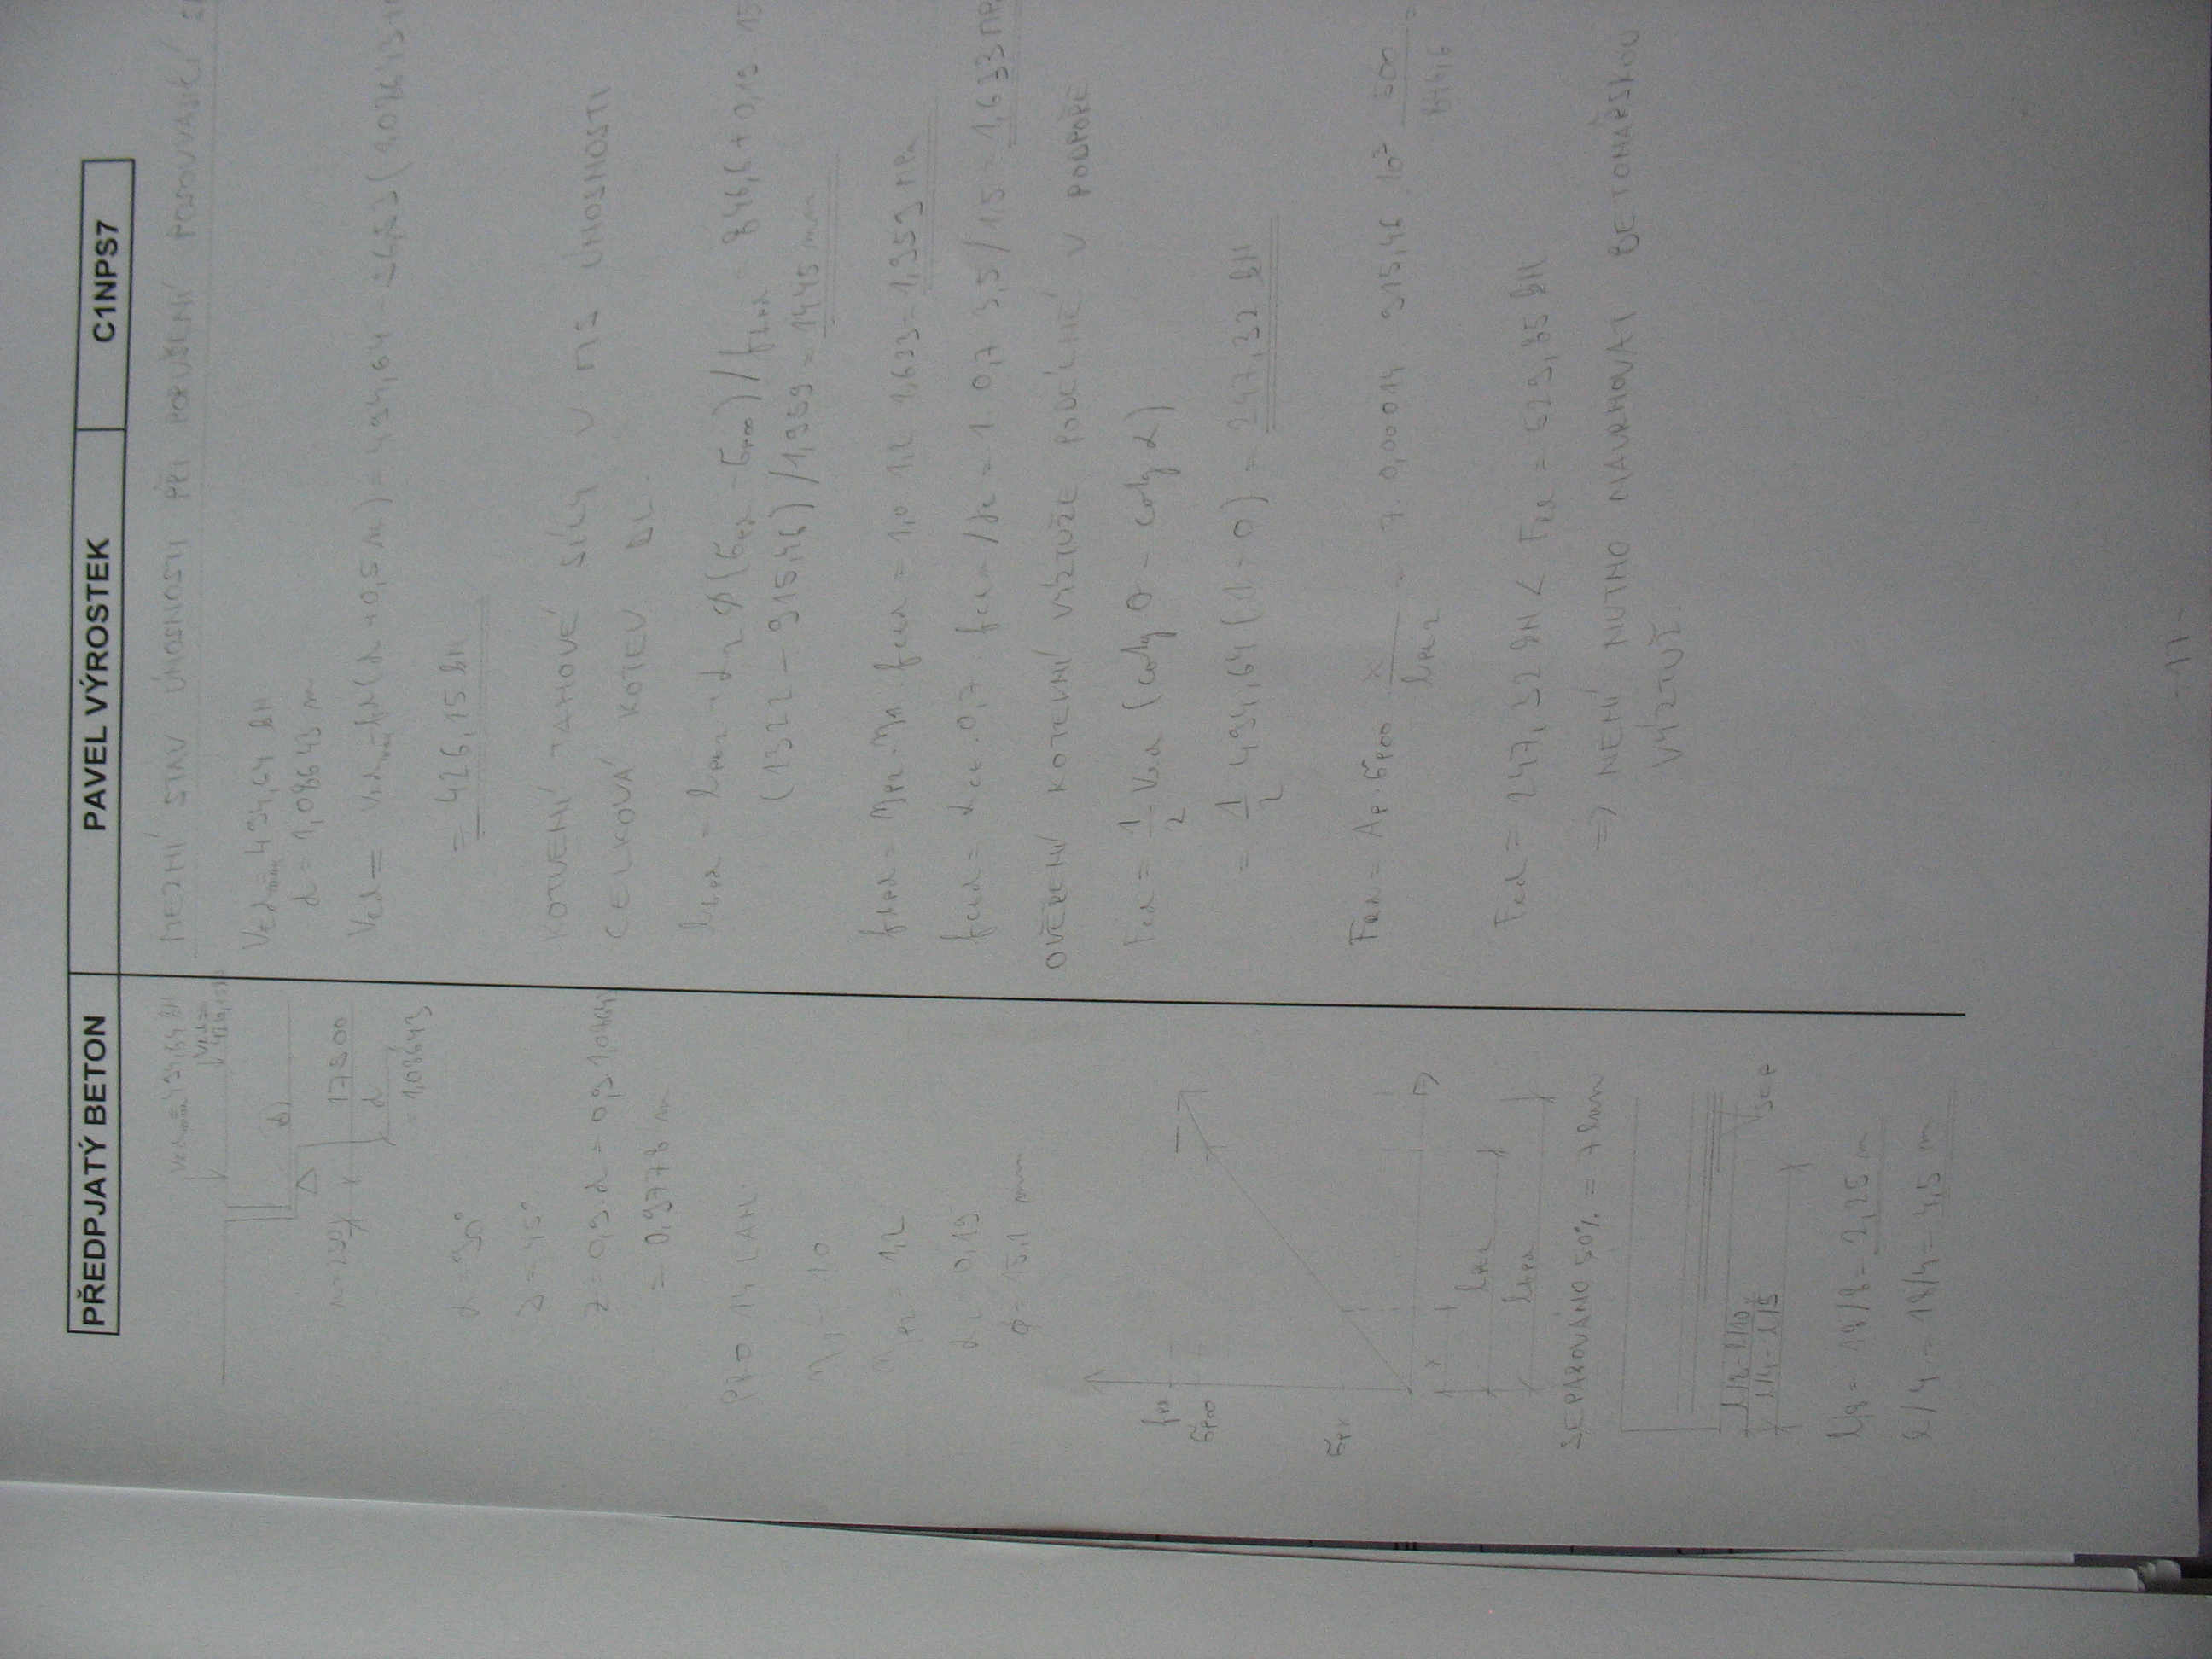 PŘEDPJATÝ BETON
PAVEL VÝROSTEK
C1NPS7
MEZNÍ STAV ÚNOSNOSTI PŘI PORUŠENÍ POSOUVAJÍCÍ
VEd,max = 494,64 kN
d = 1,08643 m
= 426,15 kN
KOTVENÍ TAHOVÉ SÍLY V MS ÚNOSNOSTI
CELKOVÁ KOTEV. DL.
lbpd = lpt2 + α2 ϕ (σpd - σp∞) / fbpd = 846,6 + 0,19 . 15
(1322 - 915,46) / 1,959 = 1445 mm
fbpd = ηp2 . η1 . fctd = 1,0 . 1,2 . 1,633 = 1,959 MPa
fctd = αct . 0,7 . fctm / γc = 1 . 0,7 . 3,5 / 1,5 = 1,633 MPa
OVĚŘENÍ KOTEVNÍ VÝZTUŽE PODÉLNÉ V PODPOŘE
FEd = 1/2 VEd (cotg θ - cotg α)
= 1/2 494,64 (1 - 0) = 247,32 kN
= 7 . 0,00014 . 915,46 . 10³
FEd = 247,32 kN < FRd = 529,85 kN
⇒ NENÍ NUTNO NAVRHOVAT BETONÁŘSKOU
VÝZTUŽ.
VEd,max = 494,64 kN
17500
d
1,08643
α = 90°
z = 0,9 . d = 0,9 . 1,08643
= 0,9778 m
PRO 14 LAN.
η1 = 1,0
ηp2 = 1,2
α2 = 0,19
ϕ = 15,2 mm
σp∞
x
lpt2
lbpd
SEPAROVÁNO 50% = 7 lan
l/8 - l/10
l/4 - l/5
l/8 = 18/8 = 2,25 m
l/4 = 18/4 = 4,5 m
- 11 -